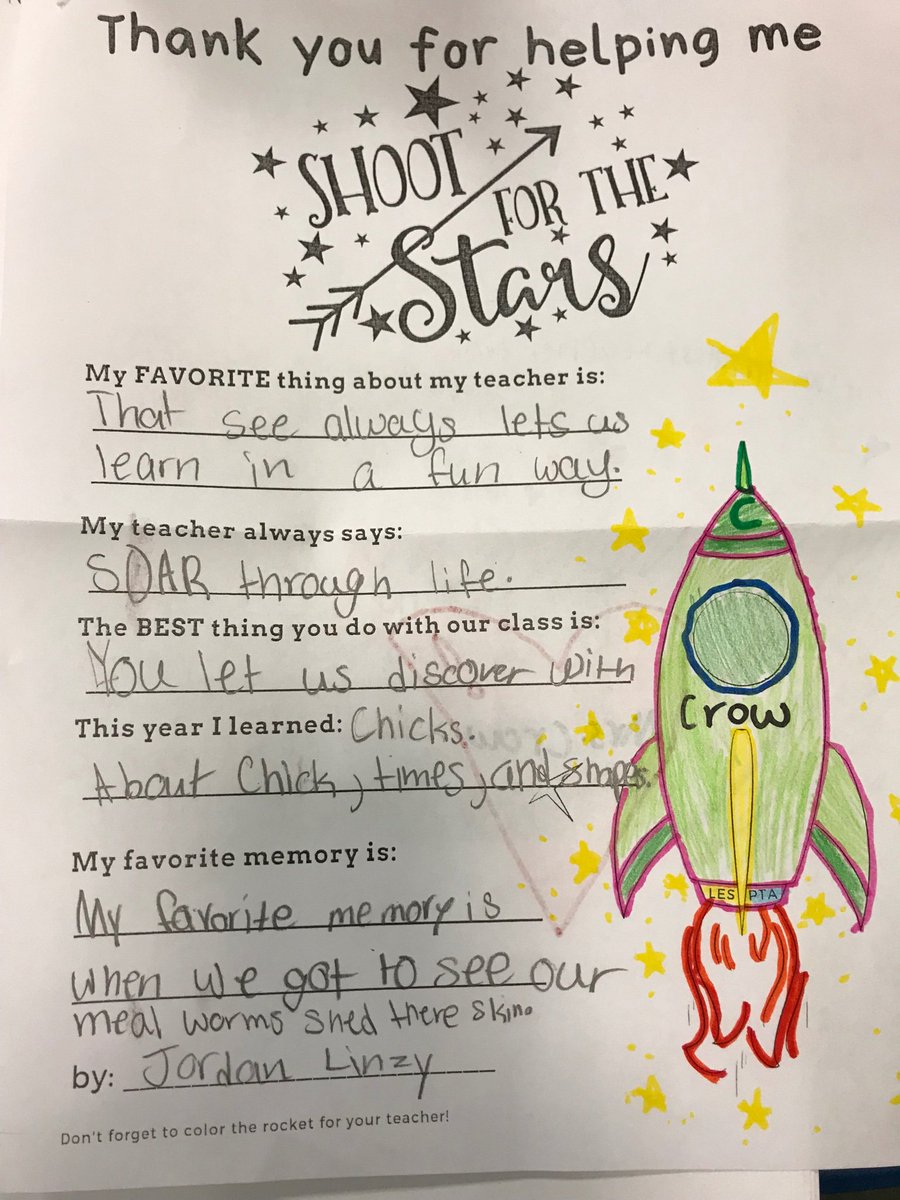 Thank you for helping me
SHOOT
FOR THE
Stars
My FAVORITE thing about my teacher is:
That see always lets us
learn in a fun way.
My teacher always says:
SOAR through life.
The BEST thing you do with our class is:
You let us discover with
This year I learned: Chicks.
About Chick, times, and shapes.
My favorite memory is:
My favorite memory is
when we got to see our
meal worms shed there skin.
by: Jordan Linzy
Don't forget to color the rocket for your teacher!
C
Crow
LES PTA